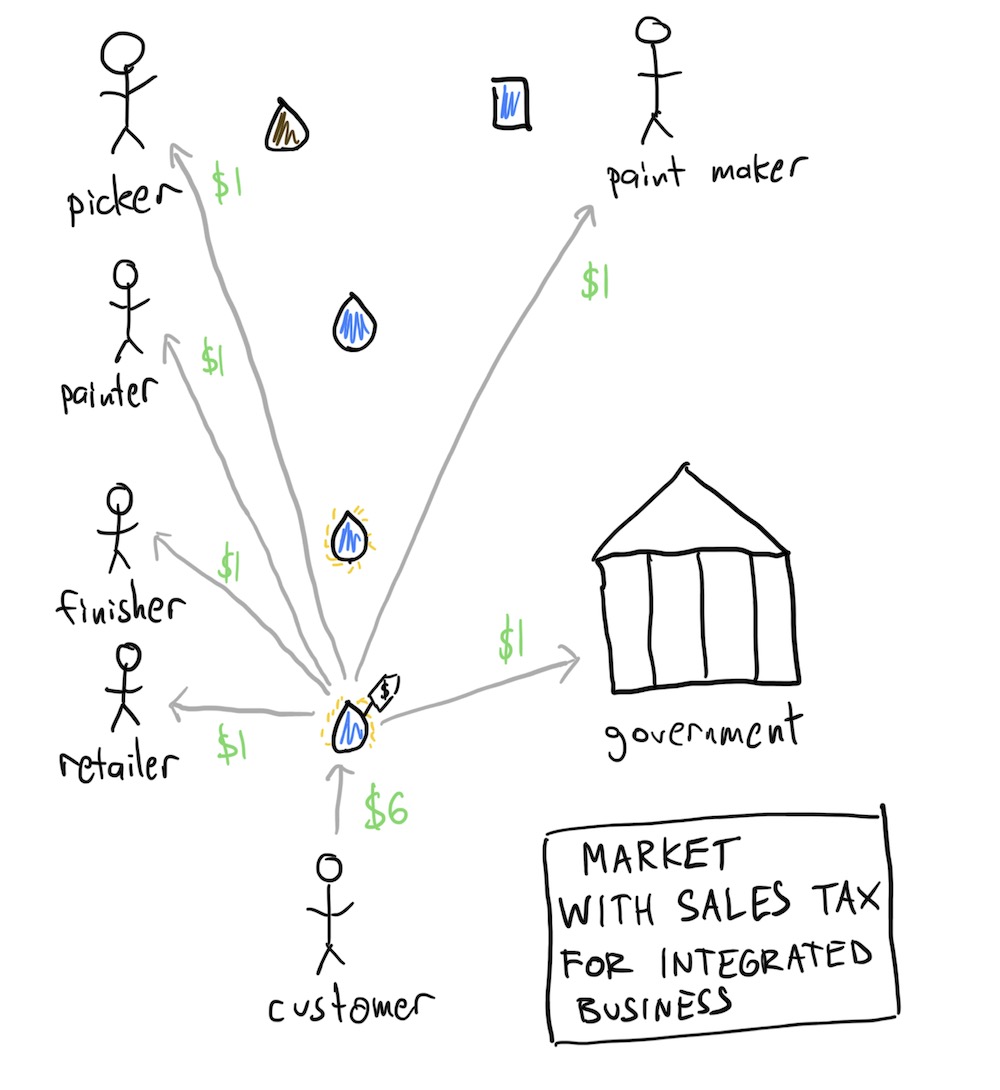 picker
$1
paint maker
$1
painter
$1
finisher
$1
$1
government
$
retailer
$1
$6
customer
MARKET
WITH SALES TAX
FOR INTEGRATED
BUSINESS